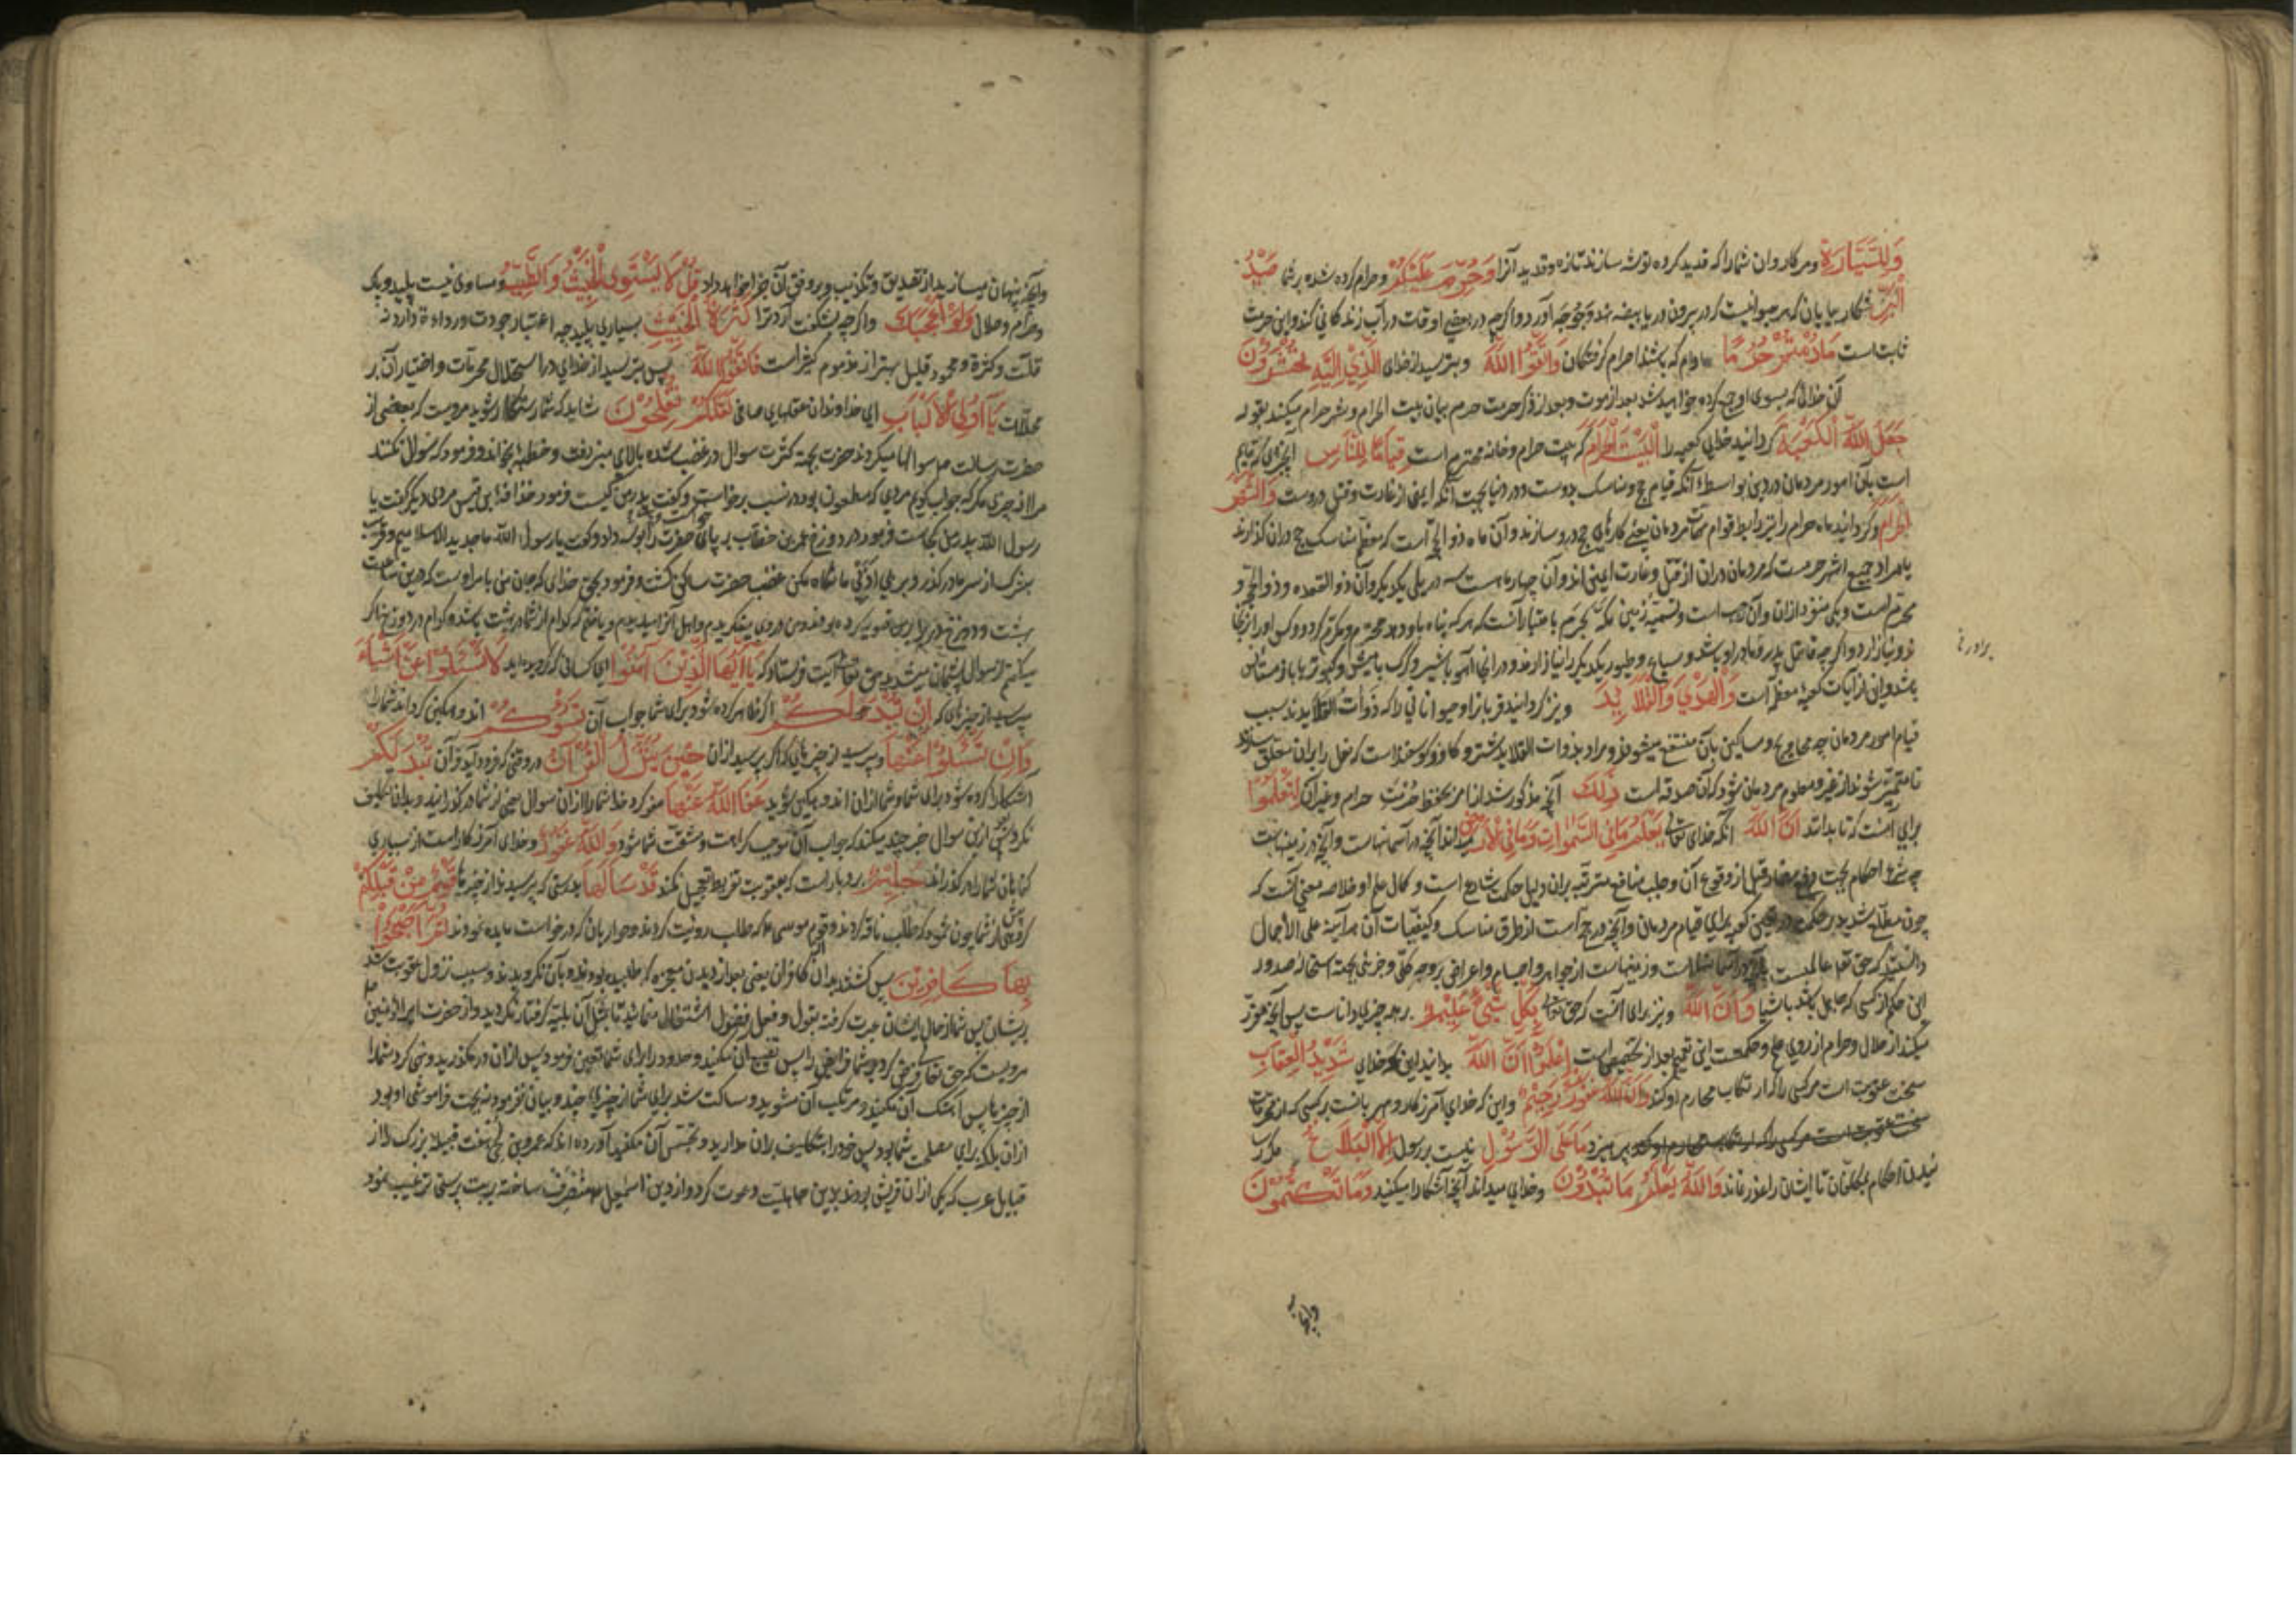 وَلِلسَّيَّارَةِ ومر کاروان شما را که قدید کرده توشه سازند تازه وقدید آنرا وَحُرِّمَ عَلَيْكُمْ وحرام کرده شده بر شما صَيْدُ
الْبَرِّ شکار بیابان که هر حیوانیست که در بیرون دریا بیضه نهد وجوجه آورد واکرچه در بعضی اوقات در آب زندکانی کند واین حرمت
ثابت است مَادُمْتُمْ حُرُمًا مادام که باشند احرام کرفتکان وَاتَّقُوا اللَّهَ وبترسید از خدای الَّذِي إِلَيْهِ تُحْشَرُونَ
آن خدائی که بسوی او جمع کرده خواهید شد بعد از موت وبعد از ذکر حرمت حرم بیان بیت الحرام وشهر حرام میکند بقوله
جَعَلَ اللَّهُ الْكَعْبَةَ کردانید خدای کعبه را الْبَيْتَ الْحَرَامَ که بیت حرام وخانه محترم است قِيَامًا لِلنَّاسِ آنچیزی که قایم
است بآن امور مردمان در دین بواسطه آنکه قیام حج ومناسک بدوست ودر دنیا بجهت آنکه ایمنی از غارت وقتل دروست وَالشَّهْرَ
الْحَرَامَ وکردانید ماه حرام را نیز رابط قوام مهمات مردمان یعنی کارهای حج درو سازند وآن ماه ذو الحجه است که معظم مناسک حج دران کذارند
یا مراد جمیع اشهر حرمست که مردمان دران از قتل وغارت ایمن اند وآن چهار ماهست سه در پی یکدیکر وآن ذو القعده وذو الحجه و
محرم است ویکی منفرد ازان وآن رجب است وتسمیه زمین مکه بحرم باعتبار آنست که هر که پناه باو دهد محترم ومکرم کردد وکس او را از آنجا
نرنجاند واکرچه قاتل پدر ومادر او باشد وسباع وطیور یکدیکر را نیازارند ودر انجا آهو با شیر وکرک با میش وکبوتر با باز مستأنس
باشد واین از آیات کعبه معظمه است وَالْهَدْيَ وَالْقَلَائِدَ ونیز کردانید قربان را وحیواناتی را که ذوات القلایدند سبب
قیام امور مردمان چه محاویج ومساکین بآن منتفع میشوند ومراد بذوات القلاید شتر وکاو وکوسفند است که نعل را بران معلق سازند
تا متمیز شوند از غیر ومعلوم مردمان شود که آن صدقه است ذَلِكَ آنچه مذکور شد از امر بحفظ حرمت حرام وغیر آن لِتَعْلَمُوا
برای آنست که تا بدانید أَنَّ اللَّهَ آنکه خدای تعالی يَعْلَمُ مَا فِي السَّمَوَاتِ وَمَا فِي الْأَرْضِ میداند آنچه در آسمانهاست وآنچه در زمینهاست
چه شرع احکام بجهت دفع مضار قبل از وقوع آن وجلب منافع مترتبه بران دلیل حکمت شارع است وکمال علم او خلاصه معنی آنست که
چون مطلع شدید بر حکمت در تعیین کعبه برای قیام مردمان وآنچه در حج است از طرق مناسک وکیفیات آن هر آینه علی الاجمال
دانستید که حق تعالی عالمست بآنچه در آسمانهاست وزمینهاست از جواهر واجسام واعراض بر وجه کلی وجزئی بجهت استحاله صدور
این حکم از کسی که جاهل باشد باشیا وَأَنَّ اللَّهَ ونیز برای آنست که حق تعالی بِكُلِّ شَيْءٍ عَلِيمٌ بهمه چیزها داناست پس آنچه مقرر
میکند از حلال وحرام از روی علم وحکمتست این تعمیم بعد از تخصیص است اعْلَمُوا أَنَّ اللَّهَ بدانید این که خدای شَدِيدُ الْعِقَابِ
سخت عقوبت است مر کسی را که ارتکاب محارم او کند وَأَنَّ اللَّهَ غَفُورٌ رَحِيمٌ واین که خدای آمرزکار ومهربانست بر کسی که از محرمات
سخت عقوبت است مر کسی را که ارتکاب محارم او کند بپرهیزد مَا عَلَى الرَّسُولِ نیست بر رسول إِلَّا الْبَلَاغُ مکر
رسانیدن احکام بمکلفان تا ایشان را عذر نماند وَاللَّهُ يَعْلَمُ مَا تُبْدُونَ وخدای میداند آنچه آشکارا میکنید وَمَا تَكْتُمُونَ
برادر را
وآنچه
وآنچه پنهان میسازید از تصدیق وتکذیب وبر وفق آن جزا خواهد داد قُلْ لَا يَسْتَوِي الْخَبِيثُ وَالطَّيِّبُ ومساوی نیست پلید وپاک
وحرام وحلال وَلَوْ أَعْجَبَكَ واکرچه بشکفت آرد ترا كَثْرَةُ الْخَبِيثِ بسیاری پلید چه اعتبار جودت ورداءة دارد نه
قلت وکثرة ومحمود قلیل بهتر از مذموم کثیر است فَاتَّقُوا اللَّهَ پس بترسید از خدای در استحلال محرمات واختیار آن بر
محللات يَا أُولِي الْأَلْبَابِ ای خداوندان عقلهای صافی لَعَلَّكُمْ تُفْلِحُونَ شاید که شما رستکار شوید مرویست که بعضی از
حضرت رسالت صلعم سوالها میکردند حضرت بجهة کثرت سوال در غضب شده بالای منبر رفت وخطبه بخواند وفرمود که سوال نکنند
مرا از چیزی مکر که جواب کویم مردی که مطعون بود در نسب برخاست وکفت پدر من کیست فرمود حذافة بن قیس مردی دیکر کفت یا
رسول الله پدر من کجاست فرمود در دوزخ عمر بن خطاب بر پای حضرت بوسه داد وکفت یا رسول الله ما جدید الاسلامیم وقریب
بشرک از سر ما در کذر غضب حضرت ساکن کشت وفرمود بحق خدای که جان من بامر اوست که درین ساعت
بهشت ودوزخ را برای من تصویر کرده بودند
میکنم از سوال پشیمان میشدید حق تعالی آیت فرستاد که يَا أَيُّهَا الَّذِينَ آمَنُوا ای کسانی که کرویده اید لَا تَسْأَلُوا عَنْ أَشْيَاءَ
مپرسید از چیزهای که إِنْ تُبْدَ لَكُمْ اکر ظاهر کرده شود برای شما جواب آن تَسُؤْكُمْ اندوهکین کرداند شما را
وَإِنْ تَسْأَلُوا عَنْهَا وبپرسید از چیزهای که اکر پرسید ازان حِينَ يُنَزَّلُ الْقُرْآنُ در وقتی که فرود آید قرآن تُبْدَ لَكُمْ
آشکارا کرده شود برای شما وشما ازان اندوهکین شوید عَفَا اللَّهُ عَنْهَا عفو کرد خدا شما را ازان سوال یعنی از شما در کذرانید وبدان تکلیف
نکرد ازین سوال جواب آن موجب کراهت ومشقت شما شود وَاللَّهُ غَفُورٌ وخدای آمرزکار است از بسیاری
کناهان شما را در کذراند حَلِيمٌ بردبار است که بعقوبت تفریط تعجیل نکند قَدْ سَأَلَهَا بدرستی که پرسیدند از چیزها قَوْمٌ مِنْ قَبْلِكُمْ
کروهی پیش از شما چون ثمود که طلب ناقه کردند وقوم موسی که طلب رویت کردند وحواریان که درخواست مایده نمودند ثُمَّ أَصْبَحُوا
بِهَا كَافِرِينَ پس کشتند بدان کافران یعنی بعد از دیدن معجزه که طلبیده بودند بآن نکرویدند وسبب نزول عقوبت شد
بریشان پس شما از حال ایشان عبرت کرفته بقول وفعل فضول اشتغال منمائید تا بمثل آن بلیه کرفتار نکردید واز حضرت امیر المؤمنین
مرویست که حق تعالی فرض کرد بر شما فرایض را پس تضییع آن مکنید وحدود را برای شما تعیین نمود پس ازان در مکذرید ونهی کرد شما را
از چیزها پس آن مکنید ومرتکب آن مشوید وساکت شد برای شما از چیزهای چند وبیان نفرمود نه بجهت فراموشی او بود
ازان بلکه برای مصلحت شما بود پس خود را بتکلیف بران مدارید وتجسس آن مکنید آورده اند که عمرو بن لحی مهتر قبیله بزرک از
قبایل عرب که یکی ازان قریش بودند بدین جاهلیت دعوت کرد واز دین اسمعیل منحرف ساخته بربت پرستی ترغیب نمود